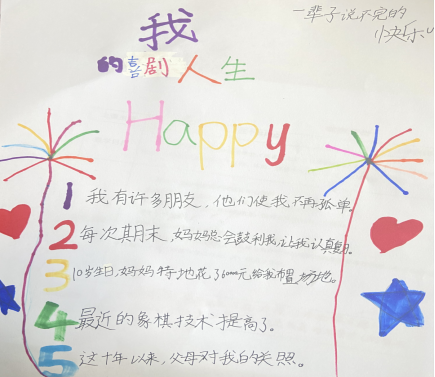 我
一辈子说不完的
快乐
的喜剧人生
Happy
1 我有许多朋友，他们使我不再孤单。
2 每次期末，妈妈总会鼓利我，让我认真
3 10岁生日，妈妈特地花了6000元给我 场地。
4 最近的象棋技术提高了。
5 这十年以来，父母对我的关照。